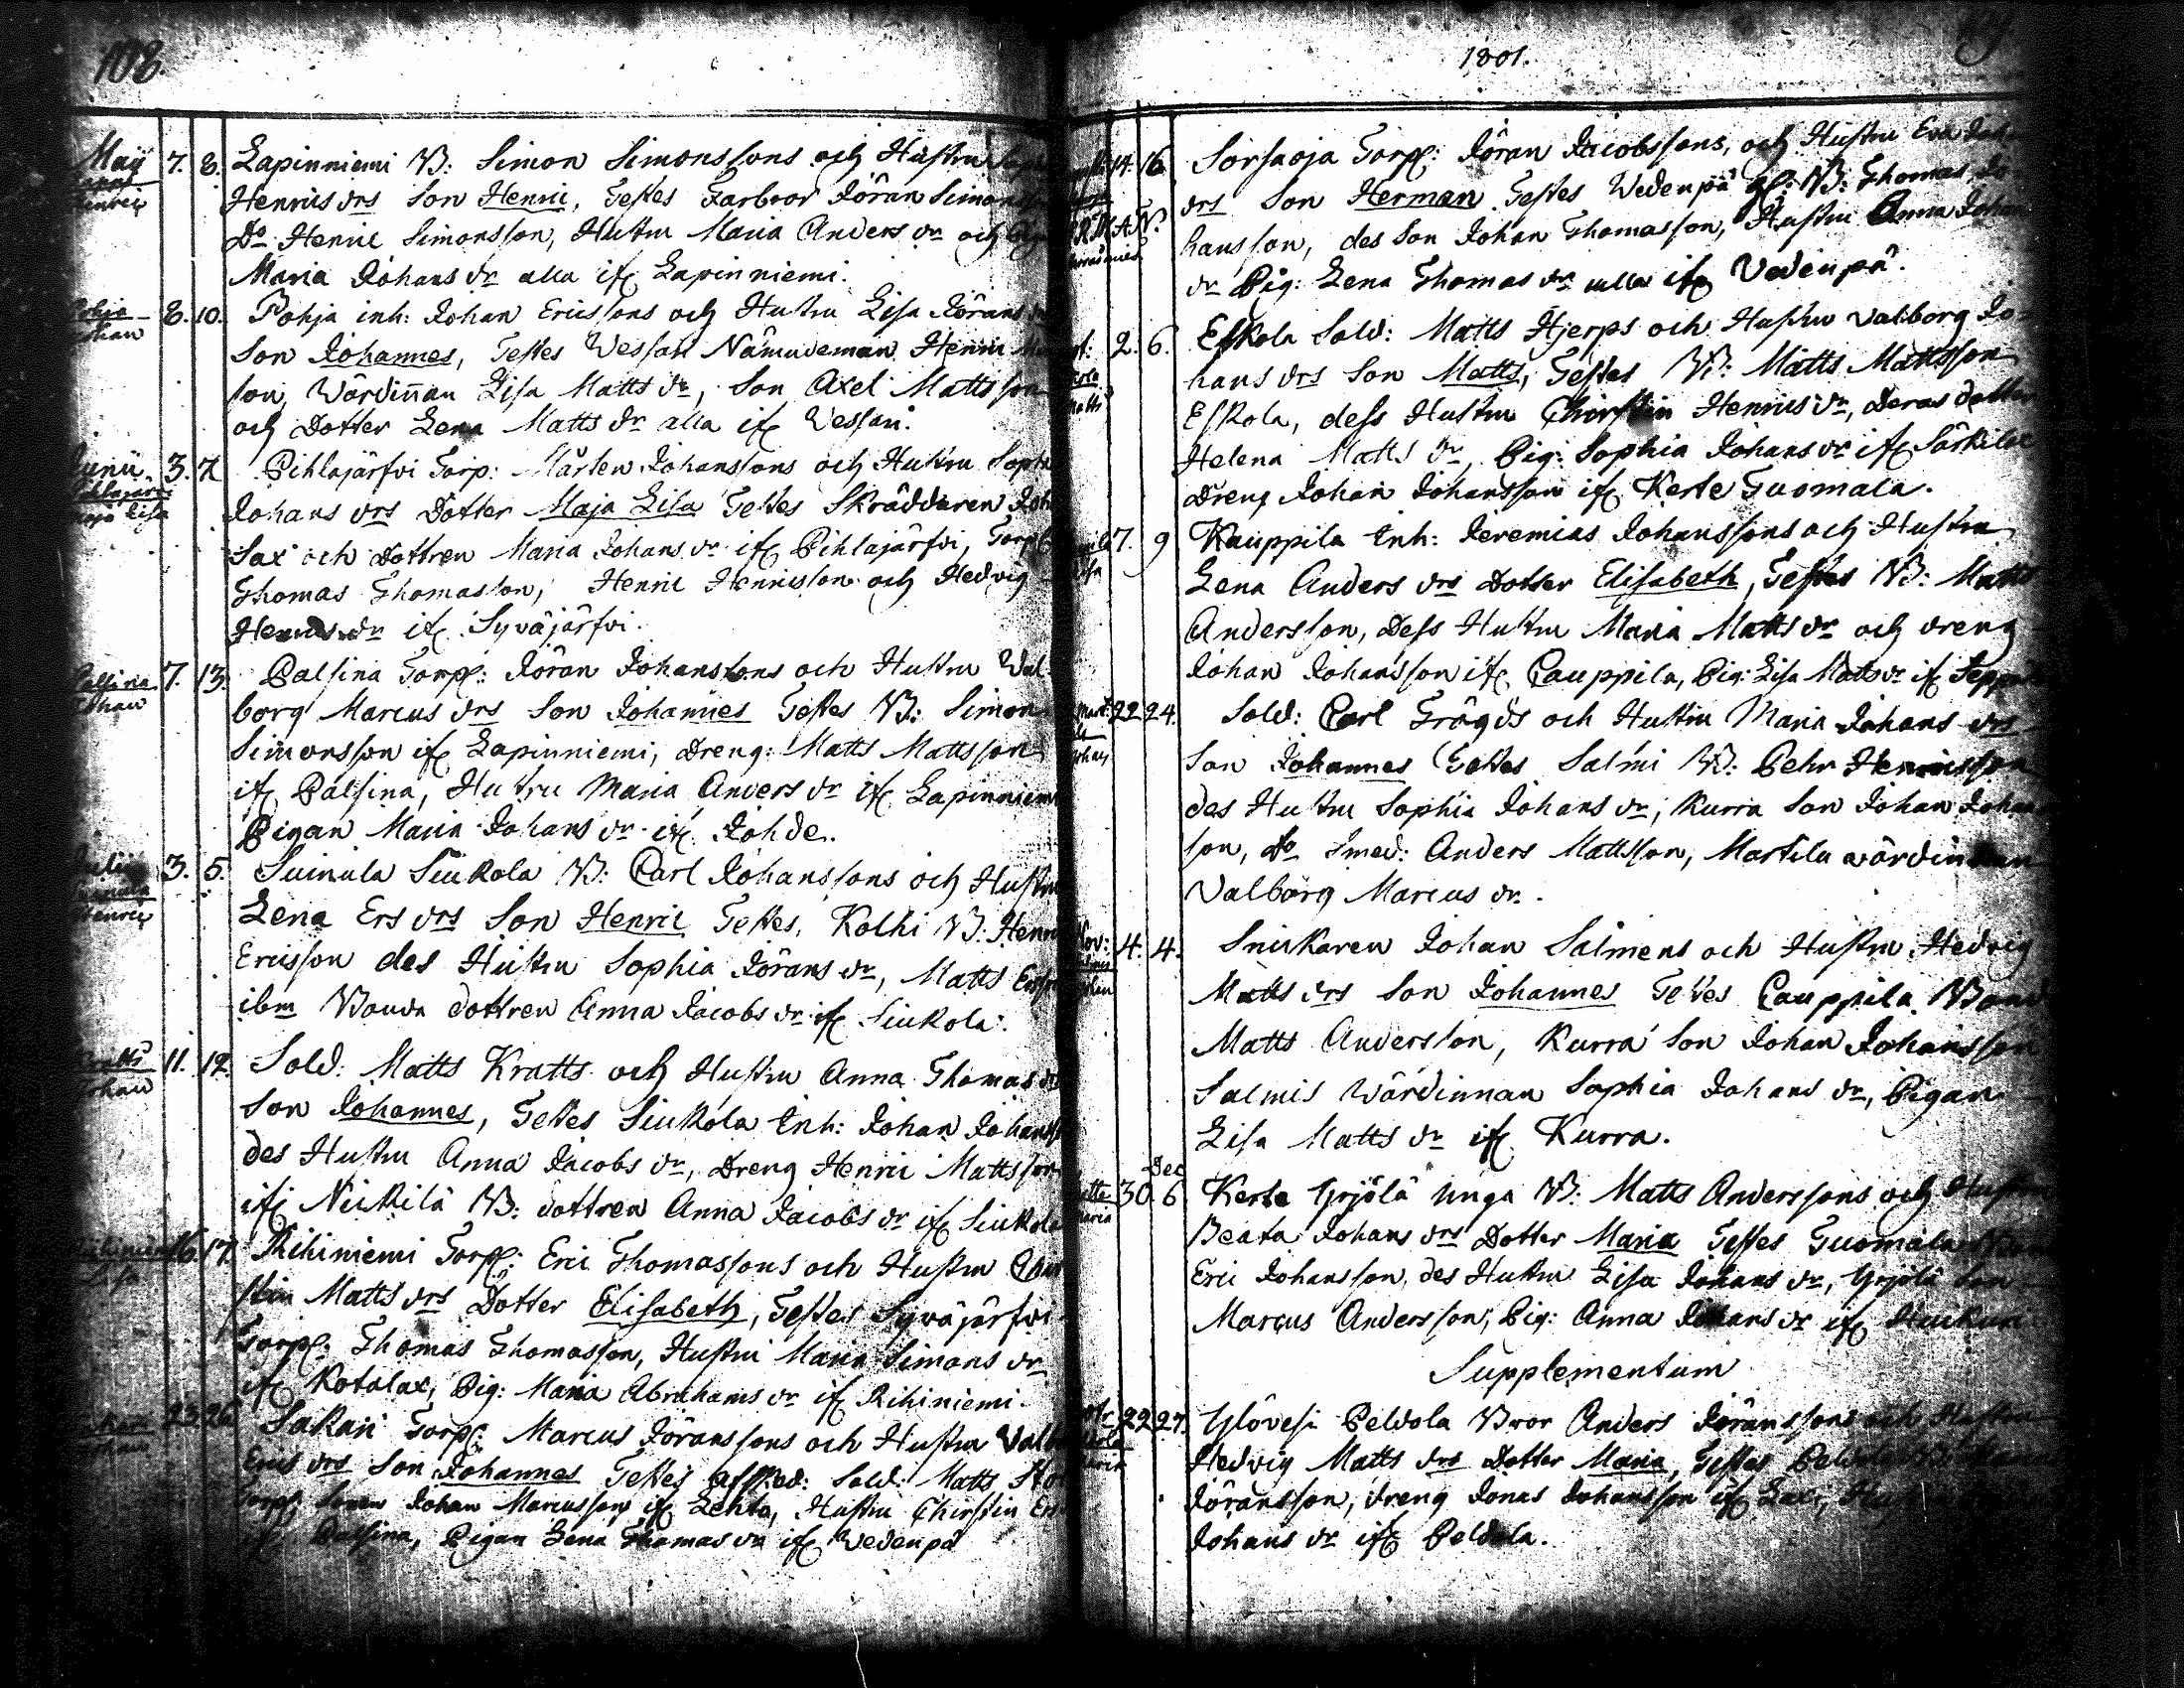 108.
Maij 7. 8. Lapinniemi B: Simon Simonssons och Hustru
Henrics drs Son Henric, Testes Farbror Jöran Simons
Do Henric Simonsson, Hustru Maria Anders dr och
Maria Johans dr alla if. Lapinniemi.
Pohja Johan 8. 10. Pohja inh: Johan Ericssons och Hustru Lisa Jörans
Son Johannes, Testes Wessari Nämndeman Henric
son, Wärdinnan Lisa Matts dr, Son Axel Mattsson
och Dotter Lena Matts dr alla if. Wessari.
Junii 3. 7. Pihlajärfvi Torp: Mårten Johanssons och Hustru Sophia
Maja Lisa Johans drs Dotter Maja Lisa Testes Skräddaren Joh
Sax och Dottren Maria Johans dr if. Pihlajärfvi, Torp:
Thomas Thomasson, Henric Henricsson och Hedvig
Henrics dr if. Syväjärfvi.
Palsina Johan 7. 13. Palsina Torp: Jöran Johanssons och Hustru Wal-
borg Marcus drs Son Johannes Testes B: Simon
Simonsson if. Lapinniemi, Dreng: Matts Mattsson
if. Palsina, Hustru Maria Anders dr if. Lapinniemi
Pigan Maria Johans dr if. Johde.
Julii 3. 5. Suinula Siukola B: Carl Johanssons och Hustru
Henric Lena Ers drs Son Henric Testes, Kolhi B: Henric
Ericsson des Hustru Sophia Jörans dr, Matts Ersson
ibm Bonda dottren Anna Jacobs dr if. Siukola.
Kratts Johan 11. 12. Sold: Matts Kratts och Hustru Anna Thomas drs
Son Johannes, Testes Siukola inh: Johan Johansson
des Hustru Anna Jacobs dr, Dreng Henric Mattsson
if. Neikilä B: dottren Anna Jacobs dr if. Siukola
Rihiniemi Lisa 16. 17. Rihiniemi Torp: Eric Thomassons och Hustru Chir
stin Matts drs Dotter Elisabeth, Testes Syväjärfvi
Torp: Thomas Thomasson, Hustru Maria Simons dr
if. Kotalax, Pig: Maria Abrahams dr if. Rihiniemi.
23. 26. Sakari Torp: Marcus Jöranssons och Hustru Valb
Erics drs Son Johannes Testes afsked: Sold: Matts
Torp: Sonen Johan Marcusson if. Lehto, Hustru Chirstin Ers
Palsina, Pigan Lena Thomas dr if. Wedenpä
1801.
14. 16. Sorsaoja Torp: Jöran Jacobssons, och Hustru Eva Joh
drs Son Herman Testes Wedenpä B: Thomas Jo
hansson, des Son Johan Thomasson, Hustru Anna Johans
dr Pig: Lena Thomas dr alla if. Vedenpä.
2. 6. Eskola Sold: Matts Hjerps och Hustru Walborg Jo-
Matts hans drs Son Matts, Testes B: Matts Mattsson
Eskola, dess Hustru Chirstin Henrics dr, deras dotter
Helena Matts dr, Pig: Sophia Johans dr if. Särkilax
Dreng Johan Johansson if. Kerte Tuomala.
7. 9 Kauppila Inh: Jeremias Johanssons och Hustru
Lena Anders drs Dotter Elisabeth, Testes B: Matts
Andersson, Dess Hustru Maria Matts dr och dreng
Johan Johansson if. Cauppila, Pig: Lisa Matts dr if. Seppälä
22. 24. Sold: Carl Trögds och Hustru Maria Johans drs
Son Johannes Testes Salmi B: Pehr Henricsson
des Hustru Sophia Johans dr, Kurra Son Johan Johans
son, do Smed: Anders Mattsson, Martila wärdinnan
Valborg Marcus dr.
Nov: 4. 4. Snickaren Johan Salmens och Hustru Hedvig
Johan Matts drs Son Johannes Testes Cauppila Bond
Matts Andersson, Kurra Son Johan Johansson
Salmis Wärdinnan Sophia Johans dr, Pigan
Lisa Matts dr if. Kurra.
Dec
Maria 30. 6 Kerte Yrjölä unga B: Matts Anderssons och Hustru
Beata Johans drs Dotter Maria Testes Tuomala
Eric Johansson, des Hustru Lisa Johans dr, Yrjölä Son
Marcus Andersson, Pig: Anna Johans dr if.
Supplementum
22. 27. Ylövesi Peldola Bror Anders Jöranssons och Hustru
Hedvig Matts drs Dotter Maria, Testes Peldola
Jöransson, dreng Jonas Johansson if.
Johans dr if. Peldola.